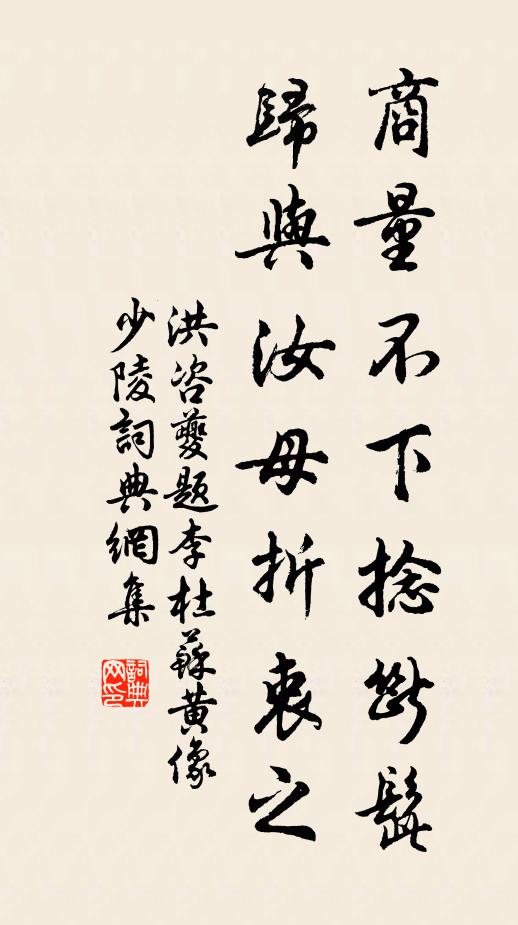 商量不下捻斷髭
歸與汝母折衷之
洪咨夔題李杜蘇黃像
少陵詞典網集
詞典網印